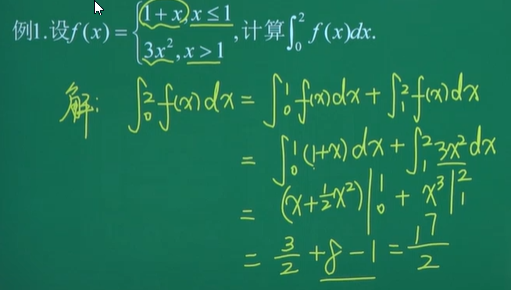 例1.设f(x)={1+x, x≤1 3x², x>1 ,计算∫₀² f(x)dx.
解: ∫₀² f(x)dx = ∫₀¹ f(x)dx + ∫₁² f(x)dx
= ∫₀¹ (1+x)dx + ∫₁² 3x²dx
= (x+½x²)|₀¹ + x³|₁²
= 3/2 + 8 - 1 = 17/2